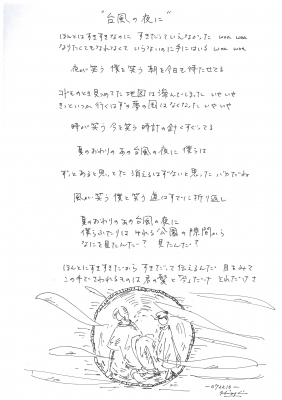 "台風の夜に"
ほんとはすきすきなのに すきだっていえなかった waa waa
なりたくてもなれなくて いらないのに手にはいる waa waa
夜が笑う 僕と笑う 朝を今日も待たせてる
コドモのとき見つけてた地図は 滲んでしまった いやいや
きっといつか 行くはずの夢の国はなくなった いやいや
時が笑う 今を笑う 時計の針くすぐってる
夏のおわりの あの台風の夜に 僕らは
ずっとあると思ってた 消えるはずないと思った バカだね
風が笑う 僕と笑う 道はすでに折り返し
夏のおわりのあの台風の夜に
僕らふたりは ゆれる公園の隙間から
なにを見たんだ? 見たんだ?
ほんとにすきすきだから すきだって伝えるんだ 目をみて
この手でさわれるものは 君の髪と だけ それだけさ